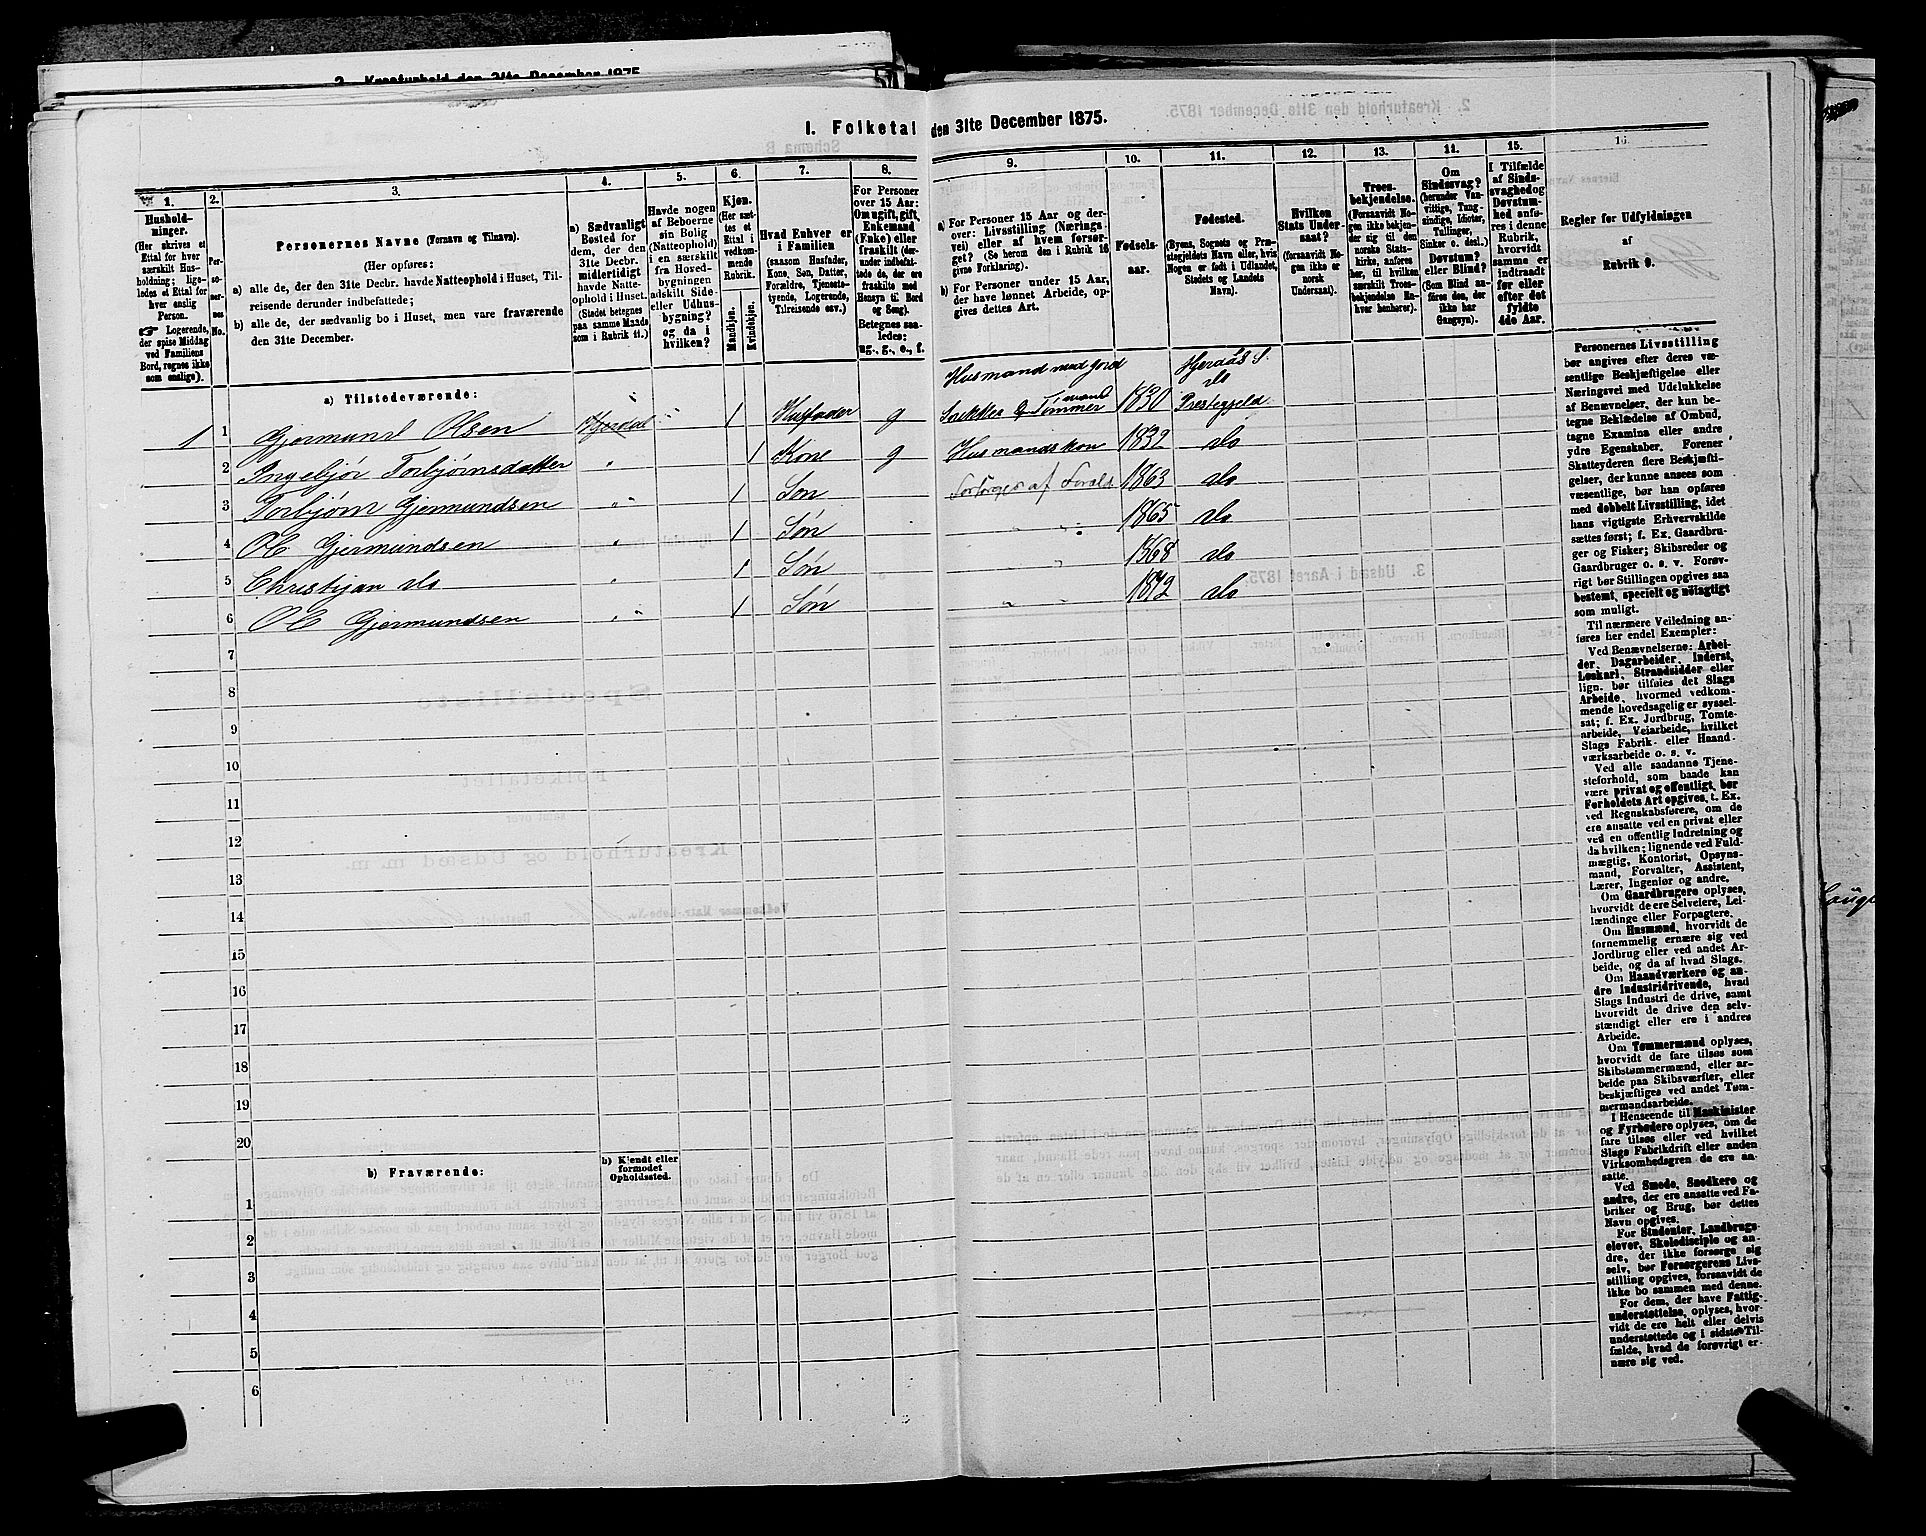 2. Kreaturhold den 31te December 1875.
I. Folketal den 31te December 1875.
1.
Hushold-
ninger.
(Her skrives et
Ettal for hver
særskilt Hus-
holdning; lige-
ledes et Ettal for
hver enslig
Person.
☞ Logerende,
der spise Middag
ved Familiens
Bord, regnes ikke
som enslige).
2.
Per-
so-
ner-
nes
No.
3.
Personernes Navne (Fornavn og Tilnavn).
(Her opføres:
a) alle de, der den 31te Decbr. havde Natteophold i Huset, Til-
reisende derunder indbefattede;
b) alle de, der sædvanlig bo i Huset, men vare fraværende
den 31te December.
4.
a) Sædvanligt
Bosted for
dem, der den
31te Decbr.
midlertidigt
havde Natte-
ophold i Huset.
(Stedet betegnes
paa samme Maade
som i Rubrik 11.)
5.
Havde nogen
af Beboerne
sin Bolig
(Natteophold)
i en særskilt
fra Hoved-
bygningen
adskilt Side-
eller Udhus-
bygning?
og da i
hvilken?
6.
Kjøn.
(Her sæt-
tes et
Ettal i
vedkom-
mende
Rubrik.
Mandkjøn.
Kvindekjøn.
7.
Hvad Enhver er
i Familien
(saasom Husfader,
Kone, Søn, Datter,
Forældre, Tjeneste-
tyende, Logerende,
Tilreisende osv.)
8.
For Personer
over 15 Aar:
Om ugift, gift,
Enkemand
(Enke) eller
fraskilt (der-
under indbefat-
tede de, der ere
fraskilte med
Hensyn til Bord
og Seng).
Betegnes saa-
ledes:
ug., g., e., f.
9.
a) For Personer 15 Aar og der-
over: Livsstilling (Nærings-
vei) eller af hvem forsør-
get? (Se herom den i Rubrik 16
givne Forklaring).
b) For Personer under 15 Aar,
der have lønnet Arbeide, op-
gives dettes Art.
10.
Fødsels-
aar.
11.
Fødested.
(Byens, Sognets og Præ-
stegjeldets Navn eller, hvis
Nogen er født i Udlandet,
Stedets og Landets
Navn).
12.
Hvilken
Stats Under-
saat?
(forsaavidt No-
gen ikke er
norsk
Undersaat).
13.
Troes-
bekjendelse.
(Forsaavidt No-
gen ikke bekjen-
der sig til den
norske Stats-
kirke, anføres
her, til hvilken
særskilt Troes-
bekjendelse En-
hver henhører).
Om
Sindssvag?
(herunder Van-
vittige, Tung-
sindige, Idioter,
Sinker o. desl.)
Døvstum?
eller Blind?
(Som Blind an-
føres den, der
ikke har
Gangsyn).
15.
I Tilfælde
af Sinds-
svaghed og
Døvstum-
hed anfø-
res i denne
Rubrik,
hvorvidt
samme er
indtraadt
før eller
efter det
fyldte
4de Aar.
16.
Regler for Udfyldningen
af
Rubrik 9.
a) Tilstedeværende:
Husmand med jord Hjerdals S. do
1 1 Gjermund Olsen Hjerdal 1 Husfader g Snekker & Tømmermand 1830 Prestegjeld
2 Ingebjør Torbjørnsdatter 1 Kone g Husmandskon 1832 do
3 Torbjørn Gjermundsen 1 Søn Forsørges af Foræld 1863 do
4 Ol Gjermundsen 1 Søn 1865 do
5 Christijan do 1 Søn 1868 do
6 Ol Gjermundsen 1 Søn 1872 do
7
8
9
10
11
12
13
14
15
16
17
18
19
20
b) Fraværende:
b) Kjendt eller
formodet
Opholdssted.
1
2
3
4
5
6
Personernes Livsstilling
bør angives efter deres væ-
sentlige Beskjæftigelse eller
Næringsvei med Udelukkelse
af Benævnelser, der kun be-
tegne Beklædelse af Ombud,
tagne Examina eller andre
ydre Egenskaber. Forener
Skatteyderen flere Beskjæfti-
gelser, der kunne ansees som
væsentlige, bør han opføres
med dobbelt Livsstilling, idet
hans vigtigste Erhvervskilde
sættes først; f. Ex. Gaardbru-
ger og Fisker; Skibsreder og
Gaardbruger o. s. v. Forøv-
rigt bør Stillingen opgives saa
bestemt, specielt og nøiagtigt
som muligt.
Til nærmere Veiledning an-
føres her endel Exempler:
Ved Benævnelserne: Arbei-
der, Dagarbeider, Inderst,
Løskarl, Strandsidder eller
lign. bør tilføies det Slags
Arbeide, hvormed vedkom-
mende hovedsagelig er syssel-
sat; f. Ex. Jordbrug, Tomte-
arbeide, Veiarbeide, hvilket
Slags Fabrik- eller Haand-
værksarbeide o. s. v.
Ved alle saadanne Tjene-
steforhold, som baade kan
være privat og offentligt, bør
Forholdets Art opgives, t. Ex.
ved Regnskabsførere, om de
ere ansatte ved en privat eller
ved en offentlig Indretning og
da hvilken; lignende ved Fuld-
mægtig, Kontorist, Opsyns-
mand, Forvalter, Assistent,
Lærer, Ingeniør og andre.
Om Gaardbrugere oplyses,
hvorvidt de ere Selveiere, Lei-
lændinge eller Forpagtere.
Om Husmænd, hvorvidt de
fornemmelig ernære sig ved
Jordbrug eller ved andet Ar-
beide, og da af hvad Slags.
Om Haandværkere og an-
dre Industridrivende, hvad
Slags Industri de drive, samt
hvorvidt de drive den selv-
stændigt eller ere i andres
Arbeide.
Om Tømmermænd oplyses,
hvorvidt de fare tilsøs som
Skibstømmermænd, eller ar-
beide paa Skibsværfter, eller
beskjæftiges ved andet Tøm-
mermandsarbeide.
I Henseende til Maskinister
og Fyrbødere oplyses, om de
fare tilsøs eller ved hvilket
Slags Fabrikdrift eller anden
Virksomhedsgren de ere an-
satte.
Ved Smede, Snedkere og
andre, der ere ansatte ved Fa-
briker og Brug, bør dettes
Navn opgives.
For Studenter, Landbrugs-
elever, Skoledisciple og an-
dre, der ikke forsørge sig
selv, bør Forsørgerens Livs-
stilling opgives, forsaavidt de
ikke bo sammen med denne.
For dem, der have Fattig-
understøttelse, oplyses, hvor-
vidt de ere helt eller delvis
understøttede og i sidste Til-
fælde, hvad de forøvrigt er-
nære sig ved.